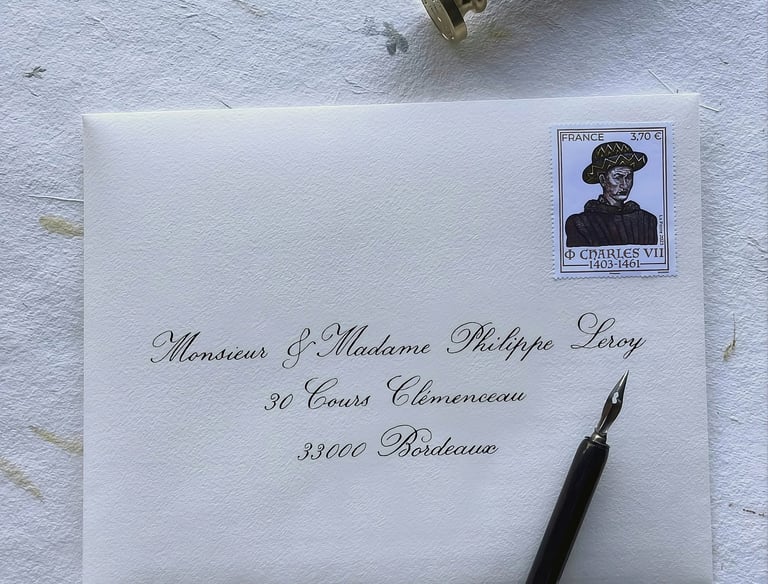 FRANCE 3,70 €
La Poste 2023
Φ CHARLES VII
1403-1461
Monsieur & Madame Philippe Leroy
30 Cours Clémenceau
33000 Bordeaux